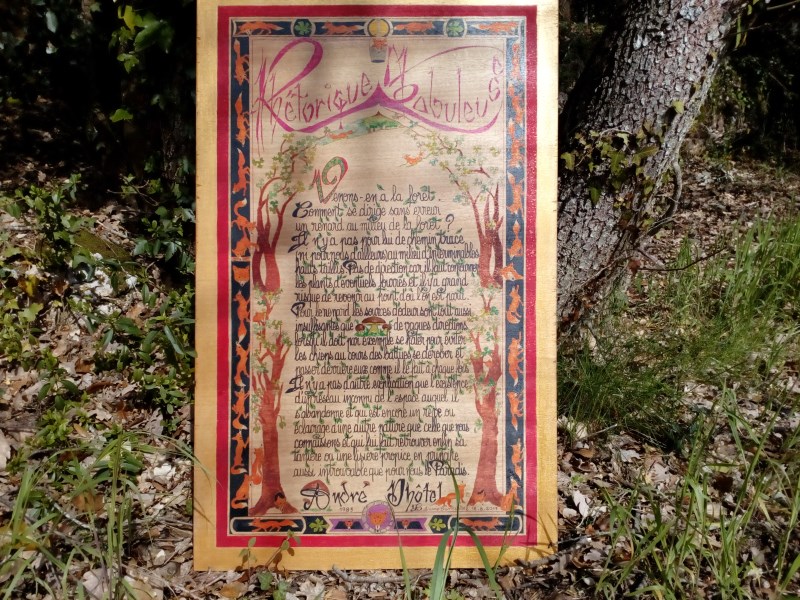 Rhétorique Fabuleuse
Venons-en à la forêt.
Comment se dirige sans erreur
un renard au milieu de la forêt ?
Il n'y a pas pour lui de chemin tracé
ni pour nous d'ailleurs au milieu d'interminables
hauts taillis. Pas de direction car il faut contourner
les plants d'éventuels fourrés et il y a grand
risque de revenir au point d'où l'on est parti.
Pour le renard les sources d'odeur sont tout aussi
insuffisantes que de vagues directions
lorsqu'il doit par exemple se hâter pour éviter
les chiens au cours des battues se dérober et
passer derrière eux comme il le fait à chaque fois
Il n'y a pas d'autre explication que l'existence
d'un réseau inconnu de l'espace auquel il
s'abandonne et qui est encore un rêve ou
éclairage d'une autre nature que celle que nous
connaissons et qui lui fait retrouver enfin sa
tanière ou une lisière propice en pleine
aussi introuvable que pour nous le Paradis.
André Dhôtel